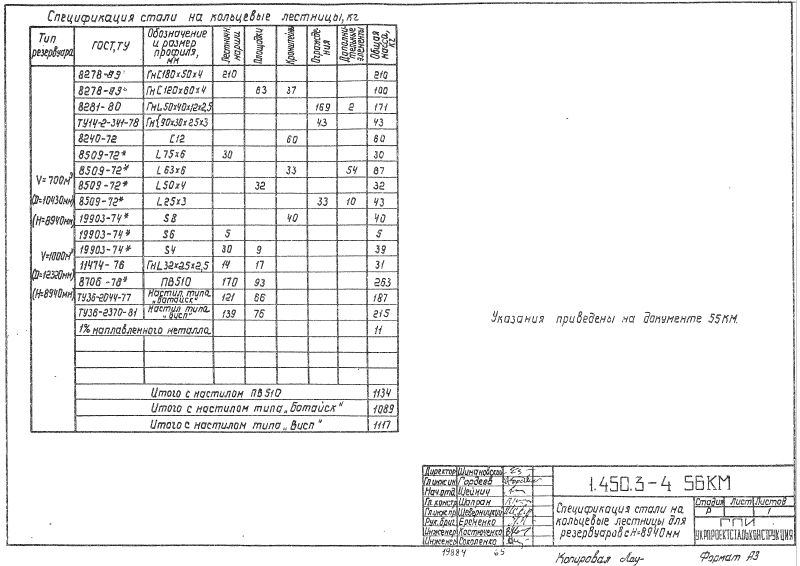 Спецификация стали на кольцевые лестницы, кг
Тип резервуара | ГОСТ, ТУ | Обозначение и размер профиля, мм | Лестничн. марши | Площадки | Кронштейны | Огражде-ния | Дополни-тельные элементы | Общая масса, кг
8278-83* Гн С180×50×4 210 210
8278-83* Гн С120×60×4 63 37 100
8281-80 Гн L50×40×12×2,5 169 2 171
ТУ14-2-341-78 43 43
8240-72 С12 60 60
8509-72* L75×6 30 30
8509-72* L63×6 33 54 87
8509-72* L50×4 32 32
8509-72* L25×3 33 10 43
19903-74* S8 40 40
19903-74* S6 5 5
19903-74* S4 30 9 39
11474-76 Гн L32×25×2,5 14 17 31
8706-78* ПВ510 170 93 263
ТУ36-2044-77 Настил типа „Батайск" 121 66 187
ТУ36-2370-81 Настил типа „Висп" 139 76 215
1% наплавленного металла 11
V=700м³
(D=10430мм)
(H=8940мм)
V=1000м³
(D=12320мм)
(H=8940мм)
Итого с настилом ПВ510 1134
Итого с настилом типа „Батайск" 1089
Итого с настилом типа „Висп" 1117
Указания приведены на документе 55КМ.
Директор Шимановский
Гл.инж.ин Гордеев
Нач.отд. Шейнич
Гл.констр. Шапран
Гл.инж.пр. Шеверницкий
Рук.бриг. Ереченко
Инженер Костюченко
Инженер Соколенко
1.450.3-4 56КМ
Спецификация стали на
кольцевые лестницы для
резервуаров с H=8940мм
Стадия Лист Листов
Р 1
ГПИ
УКРПРОЕКТСТАЛЬКОНСТРУКЦИЯ
19884 65
Копировал Формат А3